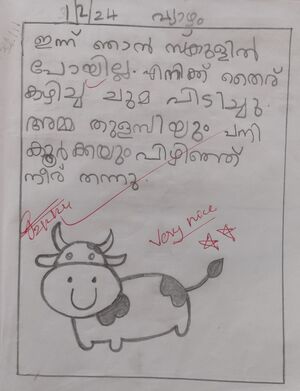 1/2/24 വ്യാഴം
ഇന്ന് ഞാൻ സ്കൂളിൽ
പോയില്ല. എനിക്ക് തൈര്
കഴിച്ച് ചുമ പിടിച്ചു.
അമ്മ തുളസിയും പനി
കൂർക്കയും പിഴിഞ്ഞ്
നീര് തന്നു.
Very nice